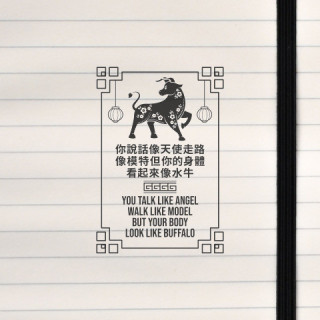 你說話像天使走路
像模特但你的身體
看起來像水牛
YOU TALK LIKE ANGEL
WALK LIKE MODEL
BUT YOUR BODY
LOOK LIKE BUFFALO